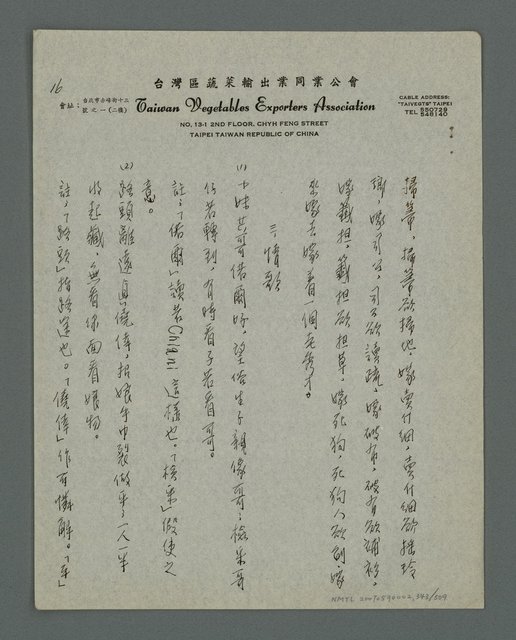 16
台灣區蔬菜輸出業同業公會
會址：台北市赤峰街十三號之一(二樓)
Taiwan Vegetables Exporters Association
NO. 13-1 2ND FLOOR, CHYH FENG STREET
TAIPEI TAIWAN REPUBLIC OF CHINA
CABLE ADDRESS:
"TAIVEGTS" TAIPEI
TEL 550729
548140
掃箒，掃箒欲掃地，嫁賣什細，賣什細欲搖玲
瑯，嫁司公，司公欲讀疏，嫁破布，破布欲補衫，
嫁籤担，籤担欲担草，嫁死狗，死狗人欲刣，嫁
來嫁去嫁着一個老秀才。
三、情歌
(1)小妹共哥偌爾好，望俗生子親像哥；檢采哥
仔若轉到，有時看子若看哥。
註：「偌爾」讀若Chiani這樣也。「檢采」假使之
意。
(2)路頭離遠真僥倖，招娘手巾裂做平；一人一半
收起藏，無看你面看娘物。
註：「路頭」指路途也。「僥倖」作可憐解。「平」
NMTL 20070590002, 343/509